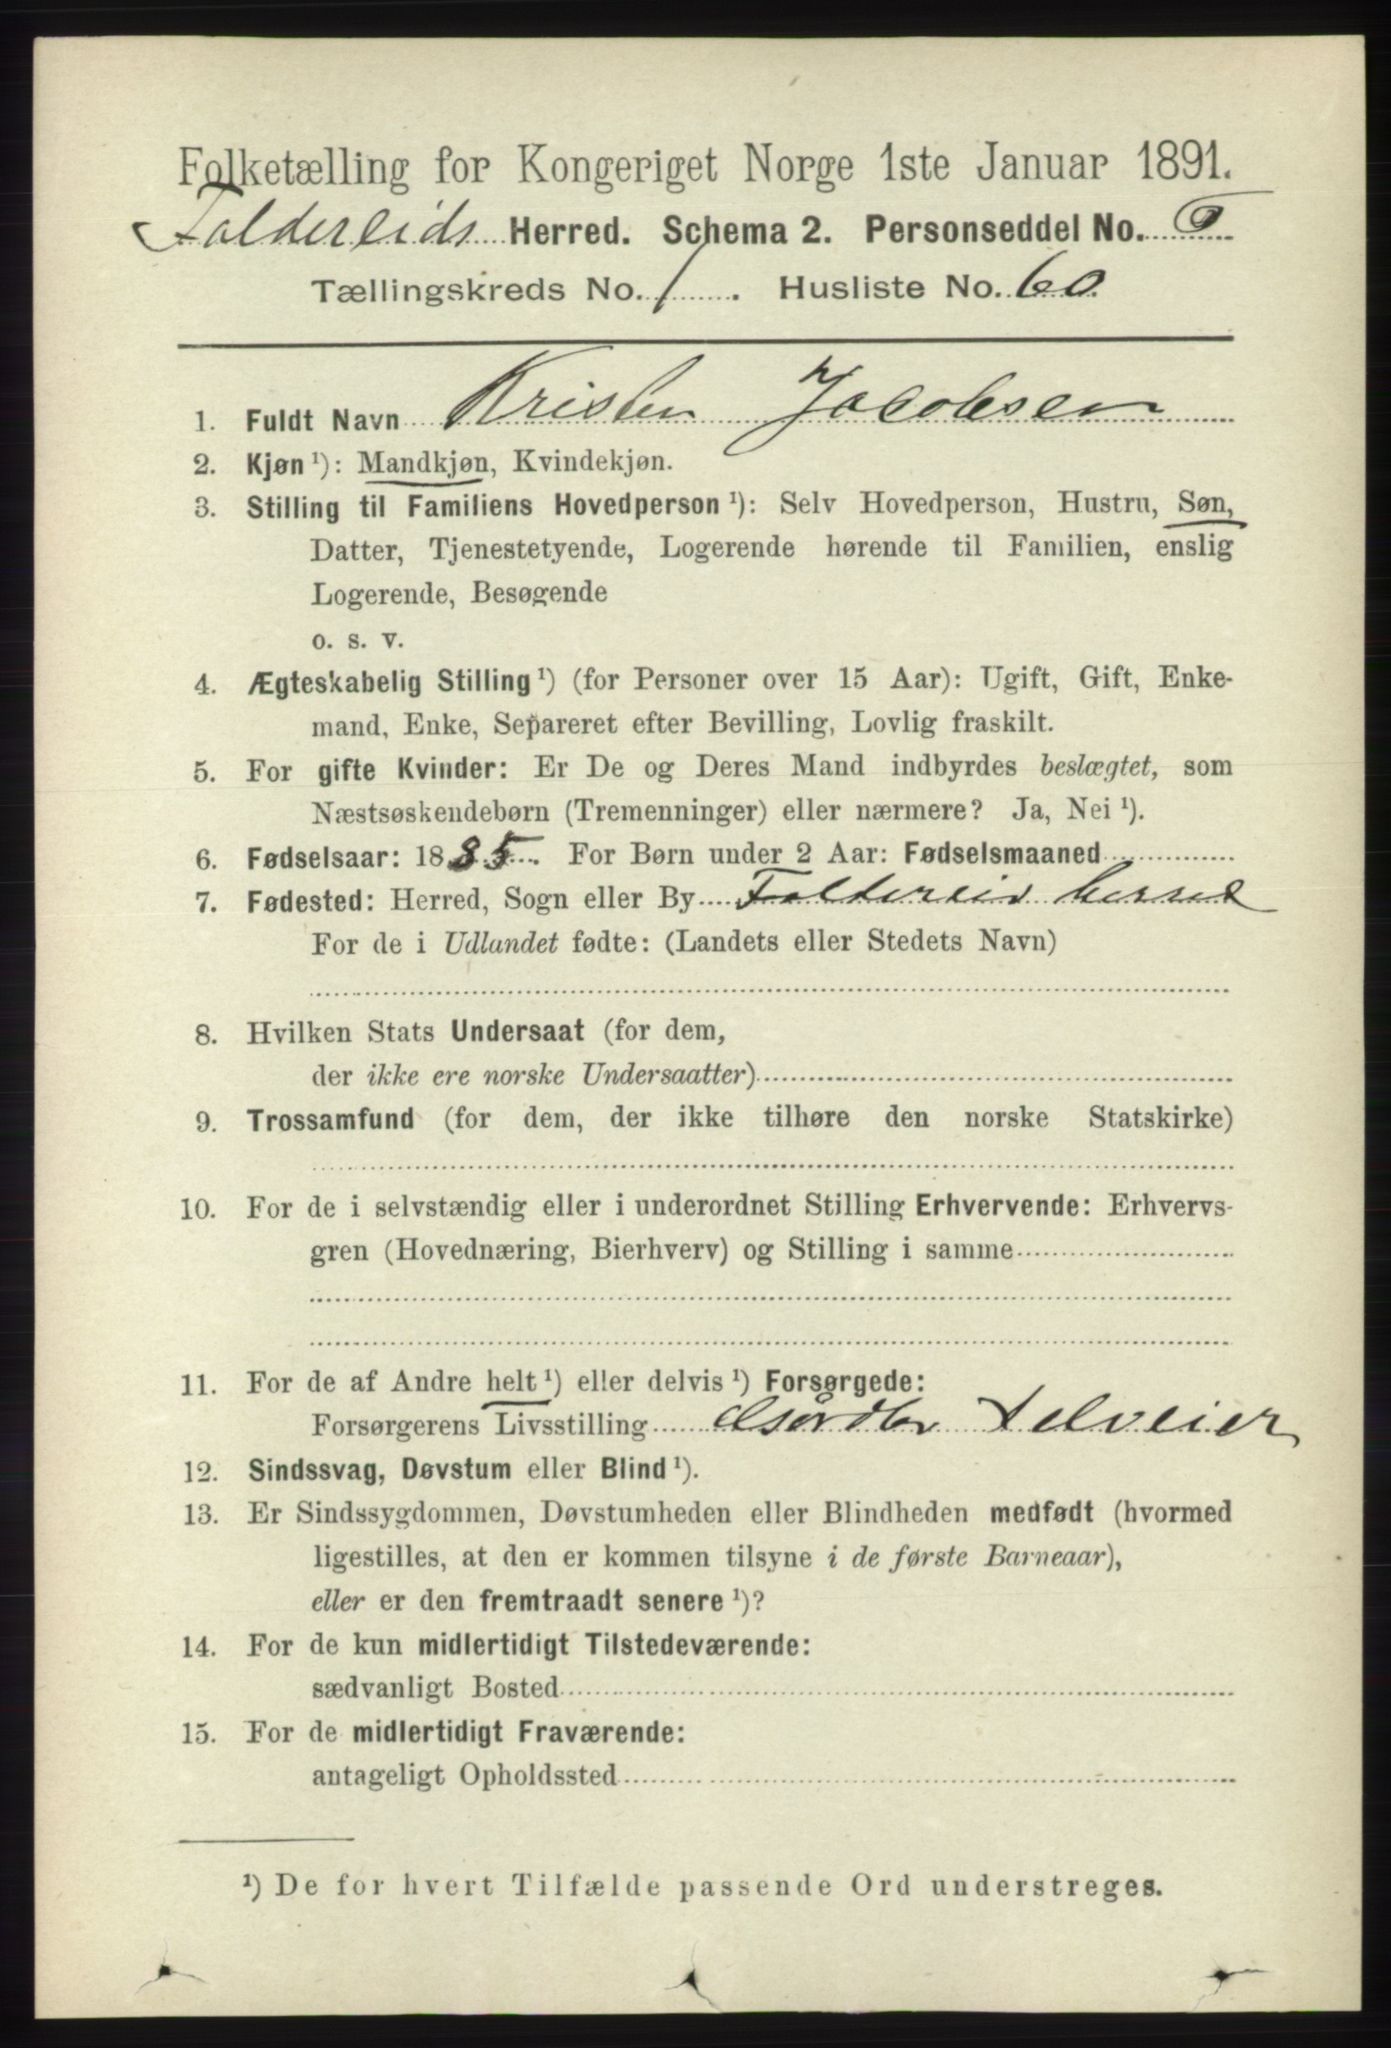 Folketælling for Kongeriget Norge 1ste Januar 1891.
Foldereids Herred. Schema 2. Personseddel No.
Tællingskreds No. 1. Husliste No. 60.
1. Fuldt Navn Kristen Jacobsen
2. Kjøn ¹): Mandkjøn, Kvindekjøn.
3. Stilling til Familiens Hovedperson ¹): Selv Hovedperson, Hustru, Søn,
Datter, Tjenestetyende, Logerende hørende til Familien, enslig
Logerende, Besøgende
o. s. v.
4. Ægteskabelig Stilling ¹) (for Personer over 15 Aar): Ugift, Gift, Enke-
mand, Enke, Separeret efter Bevilling, Lovlig fraskilt.
5. For gifte Kvinder: Er De og Deres Mand indbyrdes beslægtet, som
Næstsøskendebørn (Tremenninger) eller nærmere? Ja, Nei ¹).
6. Fødselsaar: 1885. For Børn under 2 Aar: Fødselsmaaned
7. Fødested: Herred, Sogn eller By Foldereid herred
For de i Udlandet fødte: (Landets eller Stedets Navn)
8. Hvilken Stats Undersaat (for dem,
der ikke ere norske Undersaatter)
9. Trossamfund (for dem, der ikke tilhøre den norske Statskirke)
10. For de i selvstændig eller i underordnet Stilling Erhvervende: Erhvervs-
gren (Hovednæring, Bierhverv) og Stilling i samme
11. For de af Andre helt ¹) eller delvis ¹) Forsørgede:
Forsørgerens Livsstilling Selveier
12. Sindssvag, Døvstum eller Blind ¹).
13. Er Sindssygdommen, Døvstumheden eller Blindheden medfødt (hvormed
ligestilles, at den er kommen tilsyne i de første Barneaar),
eller er den fremtraadt senere ¹)?
14. For de kun midlertidigt Tilstedeværende:
sædvanligt Bosted
15. For de midlertidigt Fraværende:
antageligt Opholdssted
¹) De for hvert Tilfælde passende Ord understreges.